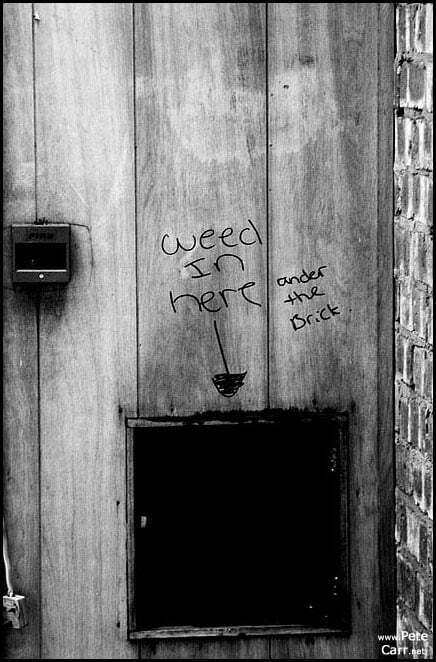 FIRE
weed
In
here
under
the
Brick
www.Pete
Carr.net